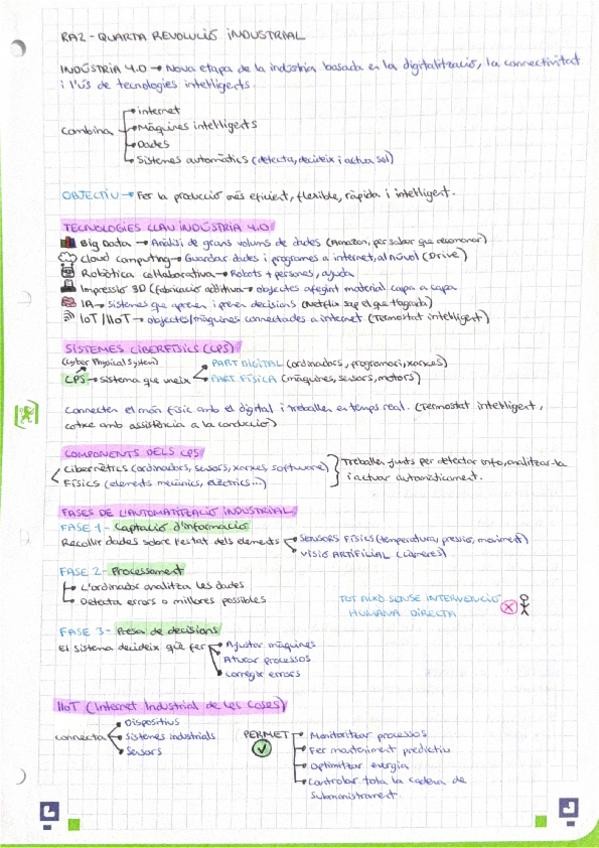 RA2 - QUARTA REVOLUCIÓ INDUSTRIAL
INDÚSTRIA 4.0 → Nova etapa de la indústria basada en la digitalització, la connectivitat
i l'ús de tecnologies intel·ligents.
Combina
Internet
Màquines intel·ligents
Dades
Sistemes automàtics (detecta, decideix i actua sol)
OBJECTIU → Fer la producció més eficient, flexible, ràpida i intel·ligent.
TECNOLOGIES CLAU INDÚSTRIA 4.0
Big Data → Anàlisi de grans volums de dades (Amazon, per saber que recomanar)
Cloud computing → Guardar dades i programes a internet, al núvol (Drive)
Robòtica col·laborativa → Robots + persones, ajuda
Impressió 3D (Fabricació additiva → objectes afegint material capa a capa
IA → Sistemes que aprenen i prenen decisions (Netflix sap el que t'agrada)
IoT / IIoT → objectes/màquines connectades a internet (Termostat intel·ligent)
SISTEMES CIBERFÍSICS (CPS)
(Cyber Physical System)
CPS → sistema que uneix
PART DIGITAL (ordinadors, programari, xarxes)
PART FÍSICA (màquines, sensors, motors)
Connecten el món físic amb el digital i treballen en temps real. (Termostat intel·ligent,
cotxe amb assistència a la conducció)
COMPONENTS DELS CPS
Cibernètics (ordinadors, sensors, xarxes, software)
Físics (elements mecànics, elèctrics...)
Treballen junts per detectar info, analitzar-la
i actuar automàticament.
FASES DE L'AUTOMATITZACIÓ INDUSTRIAL
FASE 1 - Captació d'informació
Recollir dades sobre l'estat dels elements
SENSORS FÍSICS (temperatura, pressió, moviment)
VISIÓ ARTIFICIAL (càmeres)
FASE 2 - Processament
L'ordinador analitza les dades
Detecta errors o millores possibles
TOT AIXÒ SENSE INTERVENCIÓ
HUMANA DIRECTA
FASE 3 - Presa de decisions
El sistema decideix què fer
Ajustar màquines
Aturar processos
Corregir errors
IIoT (Internet Industrial de les Coses)
connecta
Dispositius
Sistemes industrials
Sensors
PERMET
Monitoritzar processos
Fer manteniment predictiu
Optimitzar energia
Controlar tota la cadena de
subministrament.